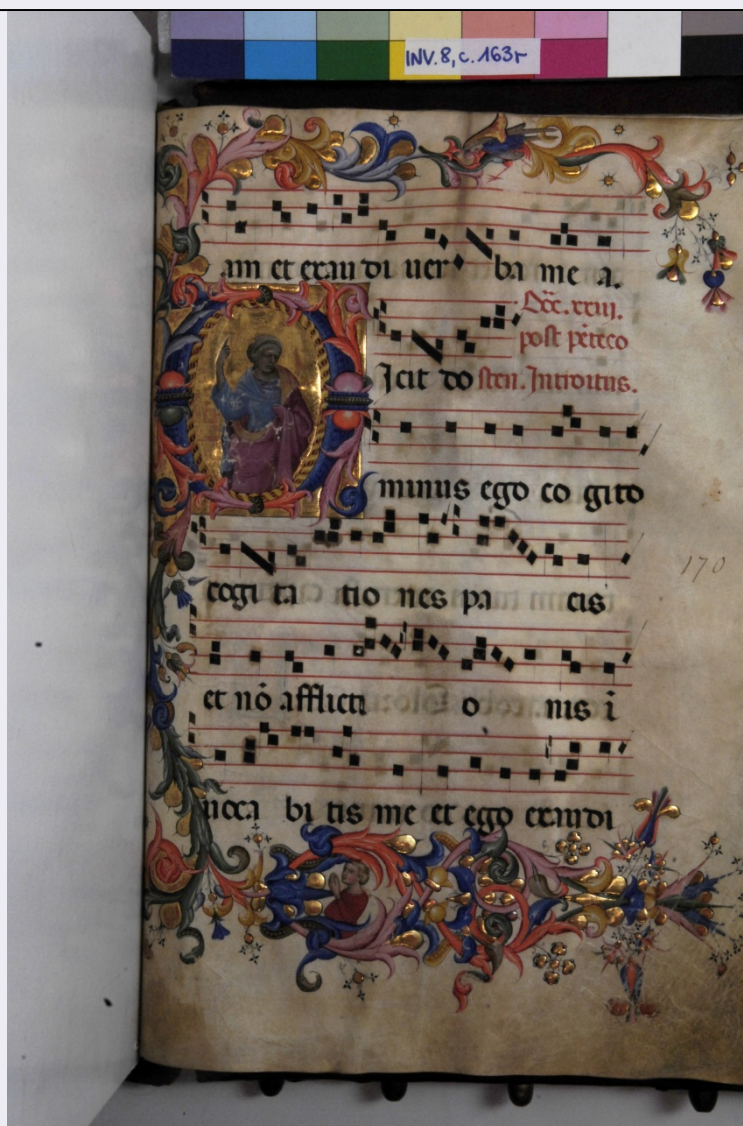 INV. 8, c. 163r
am et exau di uer ba me a.
Dc̄c. xxiii.
post pēteco
Dicit do sten. Introitus.
minus ego co gito
170
cogi ta tio nes pa cis
et nō afflicti o nis ī
uoca bi tis me et ego exaudi